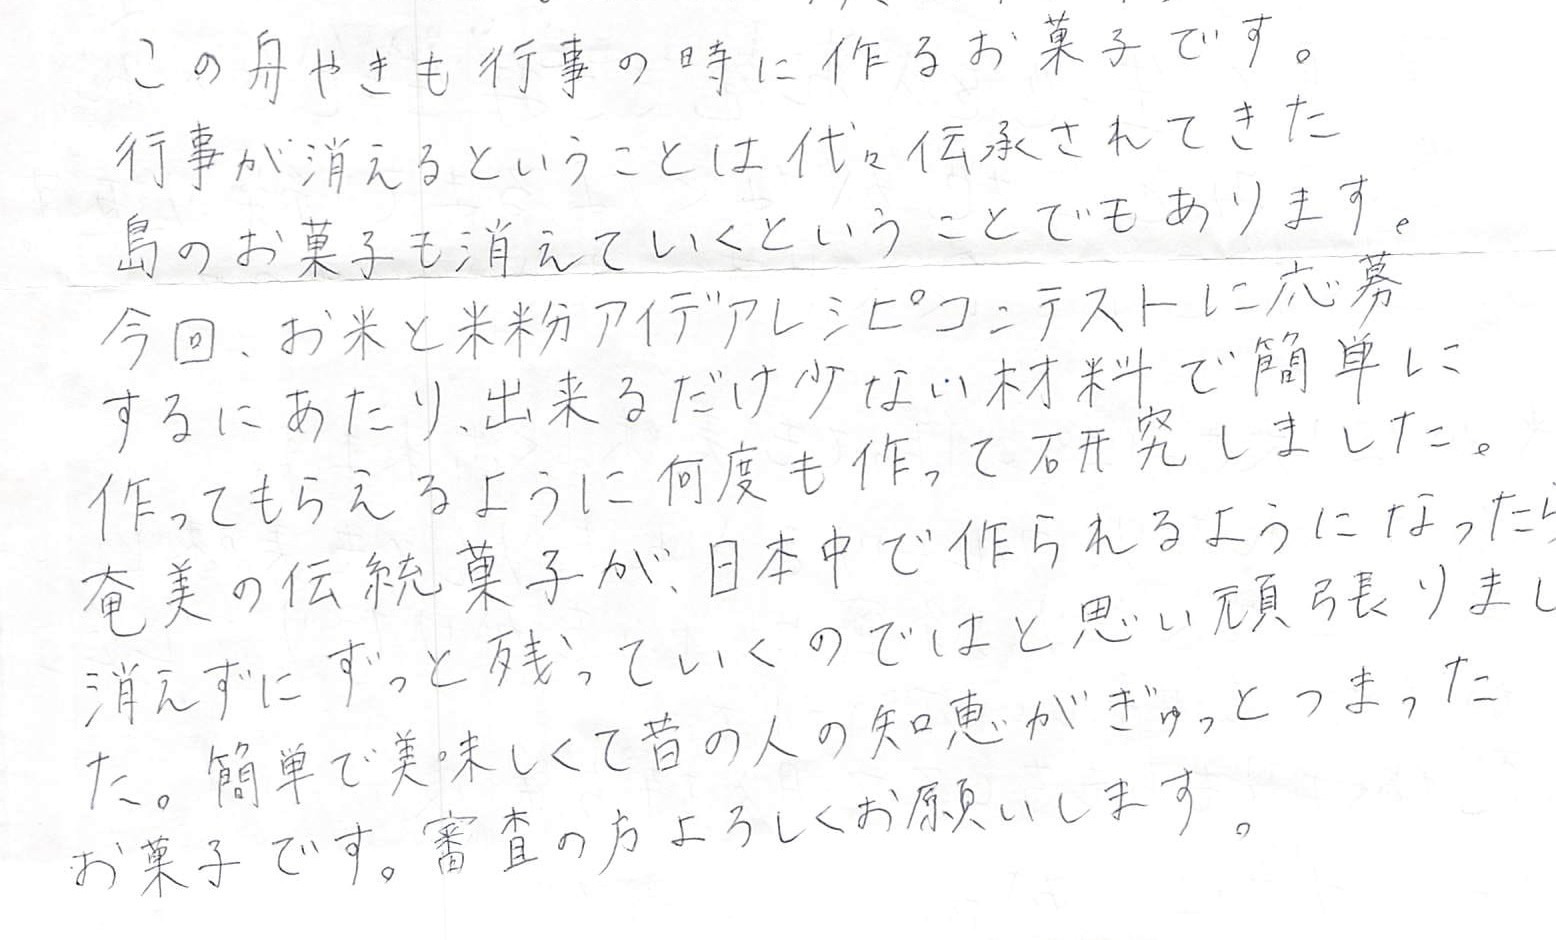 この舟やきも行事の時に作るお菓子です。
行事が消えるということは代々伝承されてきた
島のお菓子も消えていくということでもあります。
今回、お米と米粉アイデアレシピコンテストに応募
するにあたり、出来るだけ少ない材料で簡単に
作ってもらえるように何度も作って研究しました。
奄美の伝統菓子が、日本中で作られるようになったら
消えずにずっと残っていくのではと思い頑張りまし
た。簡単で美味しくて昔の人の知恵がぎゅっとつまった
お菓子です。審査の方よろしくお願いします。